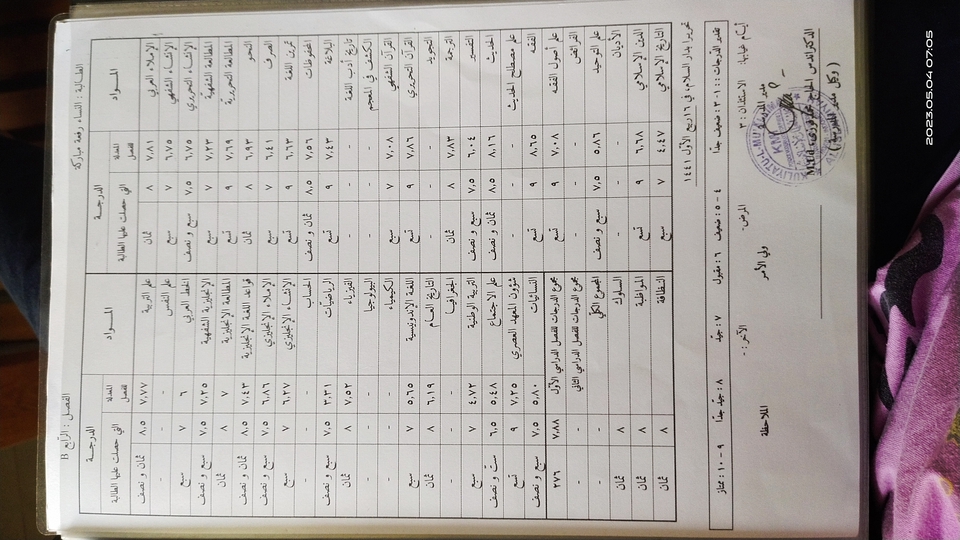 الطالبة : النساء رفعة مباركة الفصل : الرابع B
المـــواد الدرجة المـــواد الدرجة
المعدلة للفصل التي حصلت عليها الطالبة المعدلة للفصل التي حصلت عليها الطالبة
الإملاء العربي ٧,٨١ ٨ ثمان علم التربية ٧,٧٧ ٨,٥ ثمان و نصف
الإنشاء الشفهي ٦,٧٥ ٧ سبع علم النفس - - -
الإنشاء التحريري ٦,٧٥ ٧,٥ سبع و نصف الخط العربي ٦ ٧ سبع
المطالعة الشفهية ٧,٢٣ ٧ سبع الإنجليزية الشفهية ٧,٢٥ ٧,٥ سبع و نصف
المطالعة التحريرية ٧,٦٩ ٩ تسع المطالعة الإنجليزية ٧ ٨ ثمان
النحو ٦,٩٣ ٨ ثمان قواعد اللغة الإنجليزية ٧,٤٣ ٨,٥ ثمان و نصف
الصرف ٦,٤١ ٧ سبع الإملاء الإنجليزي ٦,٨٦ ٧,٥ سبع و نصف
تمرين اللغة ٦,٦٣ ٩ تسع الإنشاء الإنجليزي ٦,٢٧ ٧ سبع
المحفوظات ٧,٥٦ ٨,٥ ثمان و نصف الحساب - - -
البلاغة ٧,٤٣ ٩ تسع الرياضيات ٣,٣١ ٧,٥ سبع و نصف
تاريخ أدب اللغة - - - الفيزياء ٧,٥٢ ٨ ثمان
الكشف في المعجم - - - البيولوجيا - - -
القرآن الشفهي ٧,٠٨ ٧ سبع الكيمياء - - -
القرآن التحريري ٧,٨٦ ٩ تسع اللغة الإندونيسية ٥,٦٥ ٧ سبع
التجويد - - - التاريخ العام ٦,١٩ ٨ ثمان
الترجمة ٧,٨٣ ٨ ثمان الجغرافيا - - -
التفسير ٦,٠٤ ٧,٥ سبع و نصف التربية الوطنية ٤,٧٢ ٧ سبع
الحديث ٨,١٦ ٨,٥ ثمان و نصف علم الاجتماع ٥,٤٨ ٦,٥ ست و نصف
علم مصطلح الحديث - - - شؤون المعهد العصري ٧,٢٥ ٩ تسع
الفقه ٨,٦٥ ٩ تسع النسائيات ٥,٨٠ ٧,٥ سبع و نصف
علم أصول الفقه ٧,٠٨ ٩ تسع مجموع الدرجات للفصل الدراسي الأول ٧,٨٨ ٢٧٦
الفرائض - - - مجموع الدرجات للفصل الدراسي الثاني - -
علم التوحيد ٥,٨٦ ٧,٥ سبع و نصف المجموع الكلّي - -
الأديان - - - السلوك ٨ ثمان
الدين الإسلامي ٦,٦٨ ٩ تسع المواظبة ٨ ثمان
التاريخ الإسلامي ٤,٤٧ ٧ سبع النظافة ٨ ثمان
تحريرا بدار السلام، في ١٦ ربيع الأول ١٤٤١
تقدير الدرجات : ١-٣ : ضعيف جدا ٤-٥ : ضعيف ٦ : مقبول ٧ : جيد ٨ : جيد جدا ٩-١٠ : ممتاز
أيام غيابها: الاستئذان : ٣ المرض: - الآخر : -
مدير المدرسة ولي الأمر الملاحظة
( وكيل مدير المدرسة )
2023.05.04 07:05